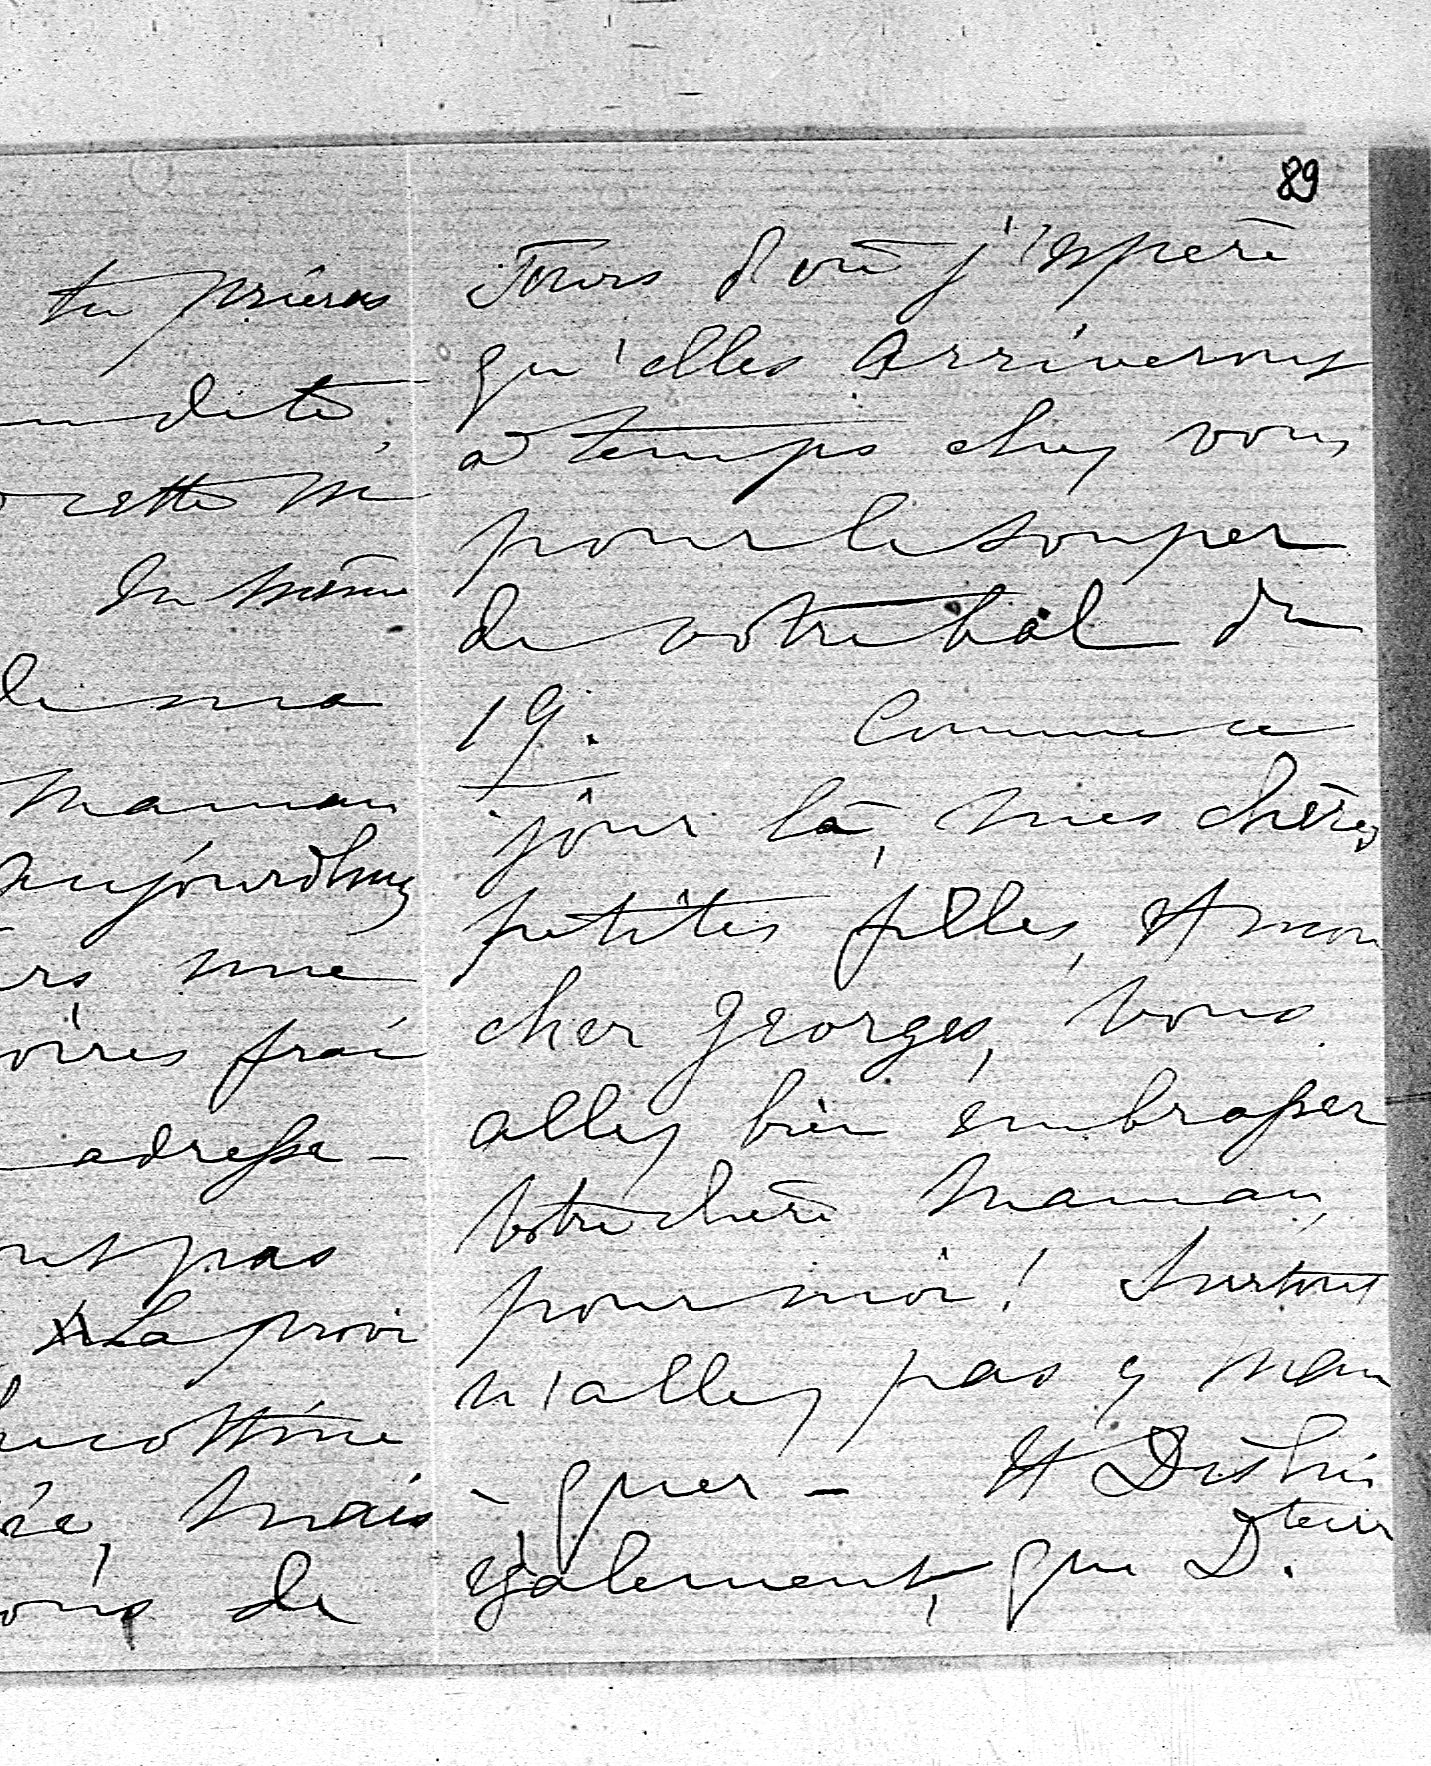 89
tu prieras
dite,
cette m
Du même
de ma
Maman
Aujourdhuy
rs une
oires frai
adresse -
nt pas
La provi
mais
de
Tours d'où j'éspère
qu'elles arriverons
à temps chez vous
pour le souper
de votre bal du
19. Comme ce
jour là, mes chères
petites filles, et mon
cher Georges, vous
allez bien embrasser
votre chère Maman,
pour moi ! Surtout
n'allez pas y man
- quer - Et
également, que D.